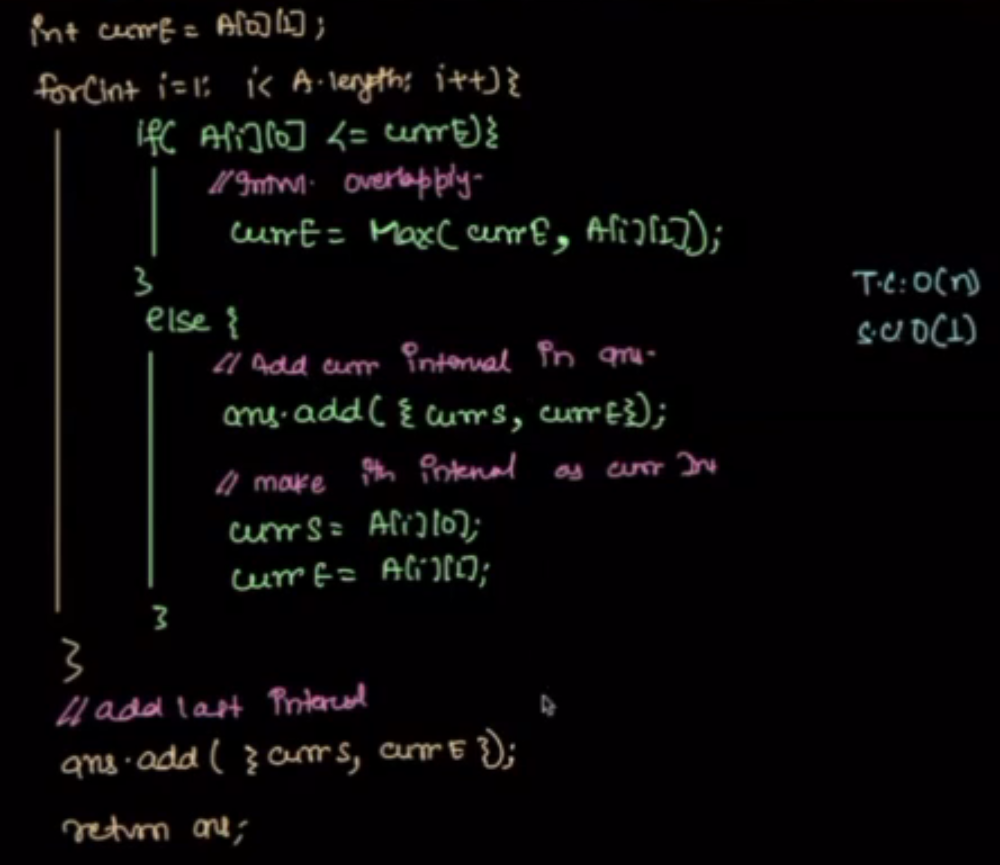 int currE = A[0][1];
for(int i=1; i< A.length; i++){
if( A[i][0] <= currE){
// overlapply-
currE = Max( currE, A[i][1]);
}
T.C: O(n)
else {
S.C/ O(1)
// Add curr interval in ans.
ans.add( { currS, currE});
// make ith interval as curr Int
currS = A[i][0];
currE = A[i][1];
}
}
// add last interval
ans.add( { currS, currE });
return ans;